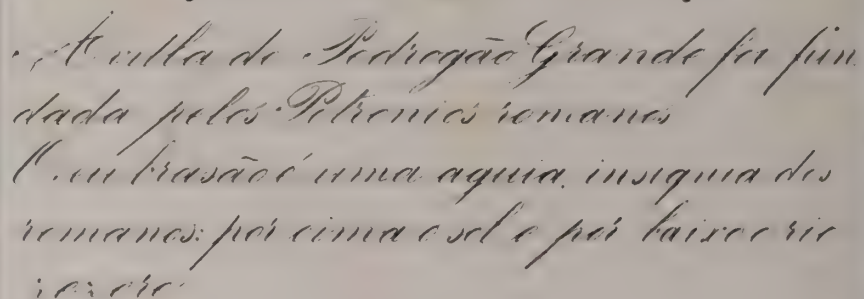 A villa de Pedrogão Grande foi fun
dada pelos Petronios romanos
O seu brasão é uma aguia, insignia dos
romanos: por cima o sol e por baixo o rio